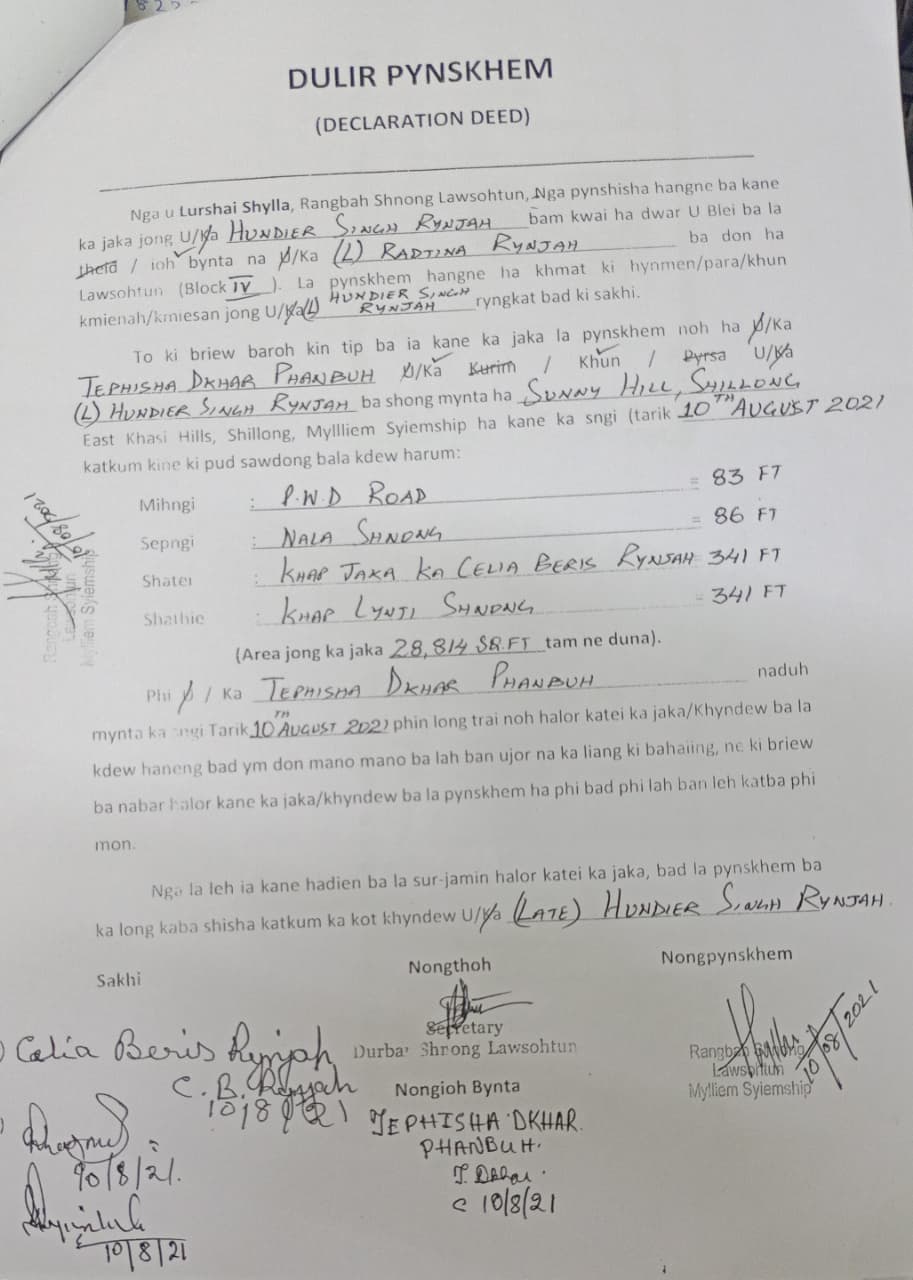 DULIR PYNSKHEM
(DECLARATION DEED)
Nga u Lurshai Shylla, Rangbah Shnong Lawsohtun, Nga pynshisha hangne ba kane
ka jaka jong U/Ka HUNDIER SINGH RYNJAH bam kwai ha dwar U Blei ba la
theid / ioh bynta na U/Ka (L) RADJINA RYNJAH ba don ha
Lawsohtun (Block IV ). La pynskhem hangne ha khmat ki hynmen/para/khun
kmienah/kmiesan jong U/Ka (L) HUNDIER SINGH RYNJAH ryngkat bad ki sakhi.
To ki briew baroh kin tip ba ia kane ka jaka la pynskhem noh ha U/Ka
TEPHISHA DKHAR PHANBUH U/Ka Kurim / Khun / Pyrsa U/Ka
(L) HUNDIER SINGH RYNJAH ba shong mynta ha SUNNY HILL, SHILLONG
East Khasi Hills, Shillong, Myllliem Syiemship ha kane ka sngi (tarik 10TH AUGUST 2021
katkum kine ki pud sawdong bala kdew harum:
Mihngi : P.W.D ROAD = 83 FT
Sepngi : NALA SHNONG = 86 FT
Shatei : KHAP JAKA KA CELIA BERIS RYNJAH 341 FT
Shathie : KHAP LYNTI SHNONG = 341 FT
(Area jong ka jaka 28,814 SQ.FT tam ne duna).
Phi U / Ka TEPHISHA DKHAR PHANBUH naduh
mynta ka sngi Tarik 10TH AUGUST 2021 phin long trai noh halor katei ka jaka/Khyndew ba la
kdew haneng bad ym don mano mano ba lah ban ujor na ka liang ki bahaiing, ne ki briew
ba nabar halor kane ka jaka/khyndew ba la pynskhem ha phi bad phi lah ban leh katba phi
mon.
Nga la leh ia kane hadien ba la sur-jamin halor katei ka jaka, bad la pynskhem ba
ka long kaba shisha katkum ka kot khyndew U/Ka (LATE) HUNDIER SINGH RYNJAH.
Rangbah Shnong
Lawsohtun
Mylliem Syiemship
10/08/2021
Sakhi
Celia Beris Rynjah
C. B. Rynjah
10/8/21
10/8/21.
10/8/21
Nongthoh
Secretary
Durbar Shnong Lawsohtun
Nongioh Bynta
TEPHISHA DKHAR
PHANBUH.
T. Dkhar.
10/8/21
Nongpynskhem
Rangbah Shnong
Lawsohtun
Mylliem Syiemship
10/08/2021